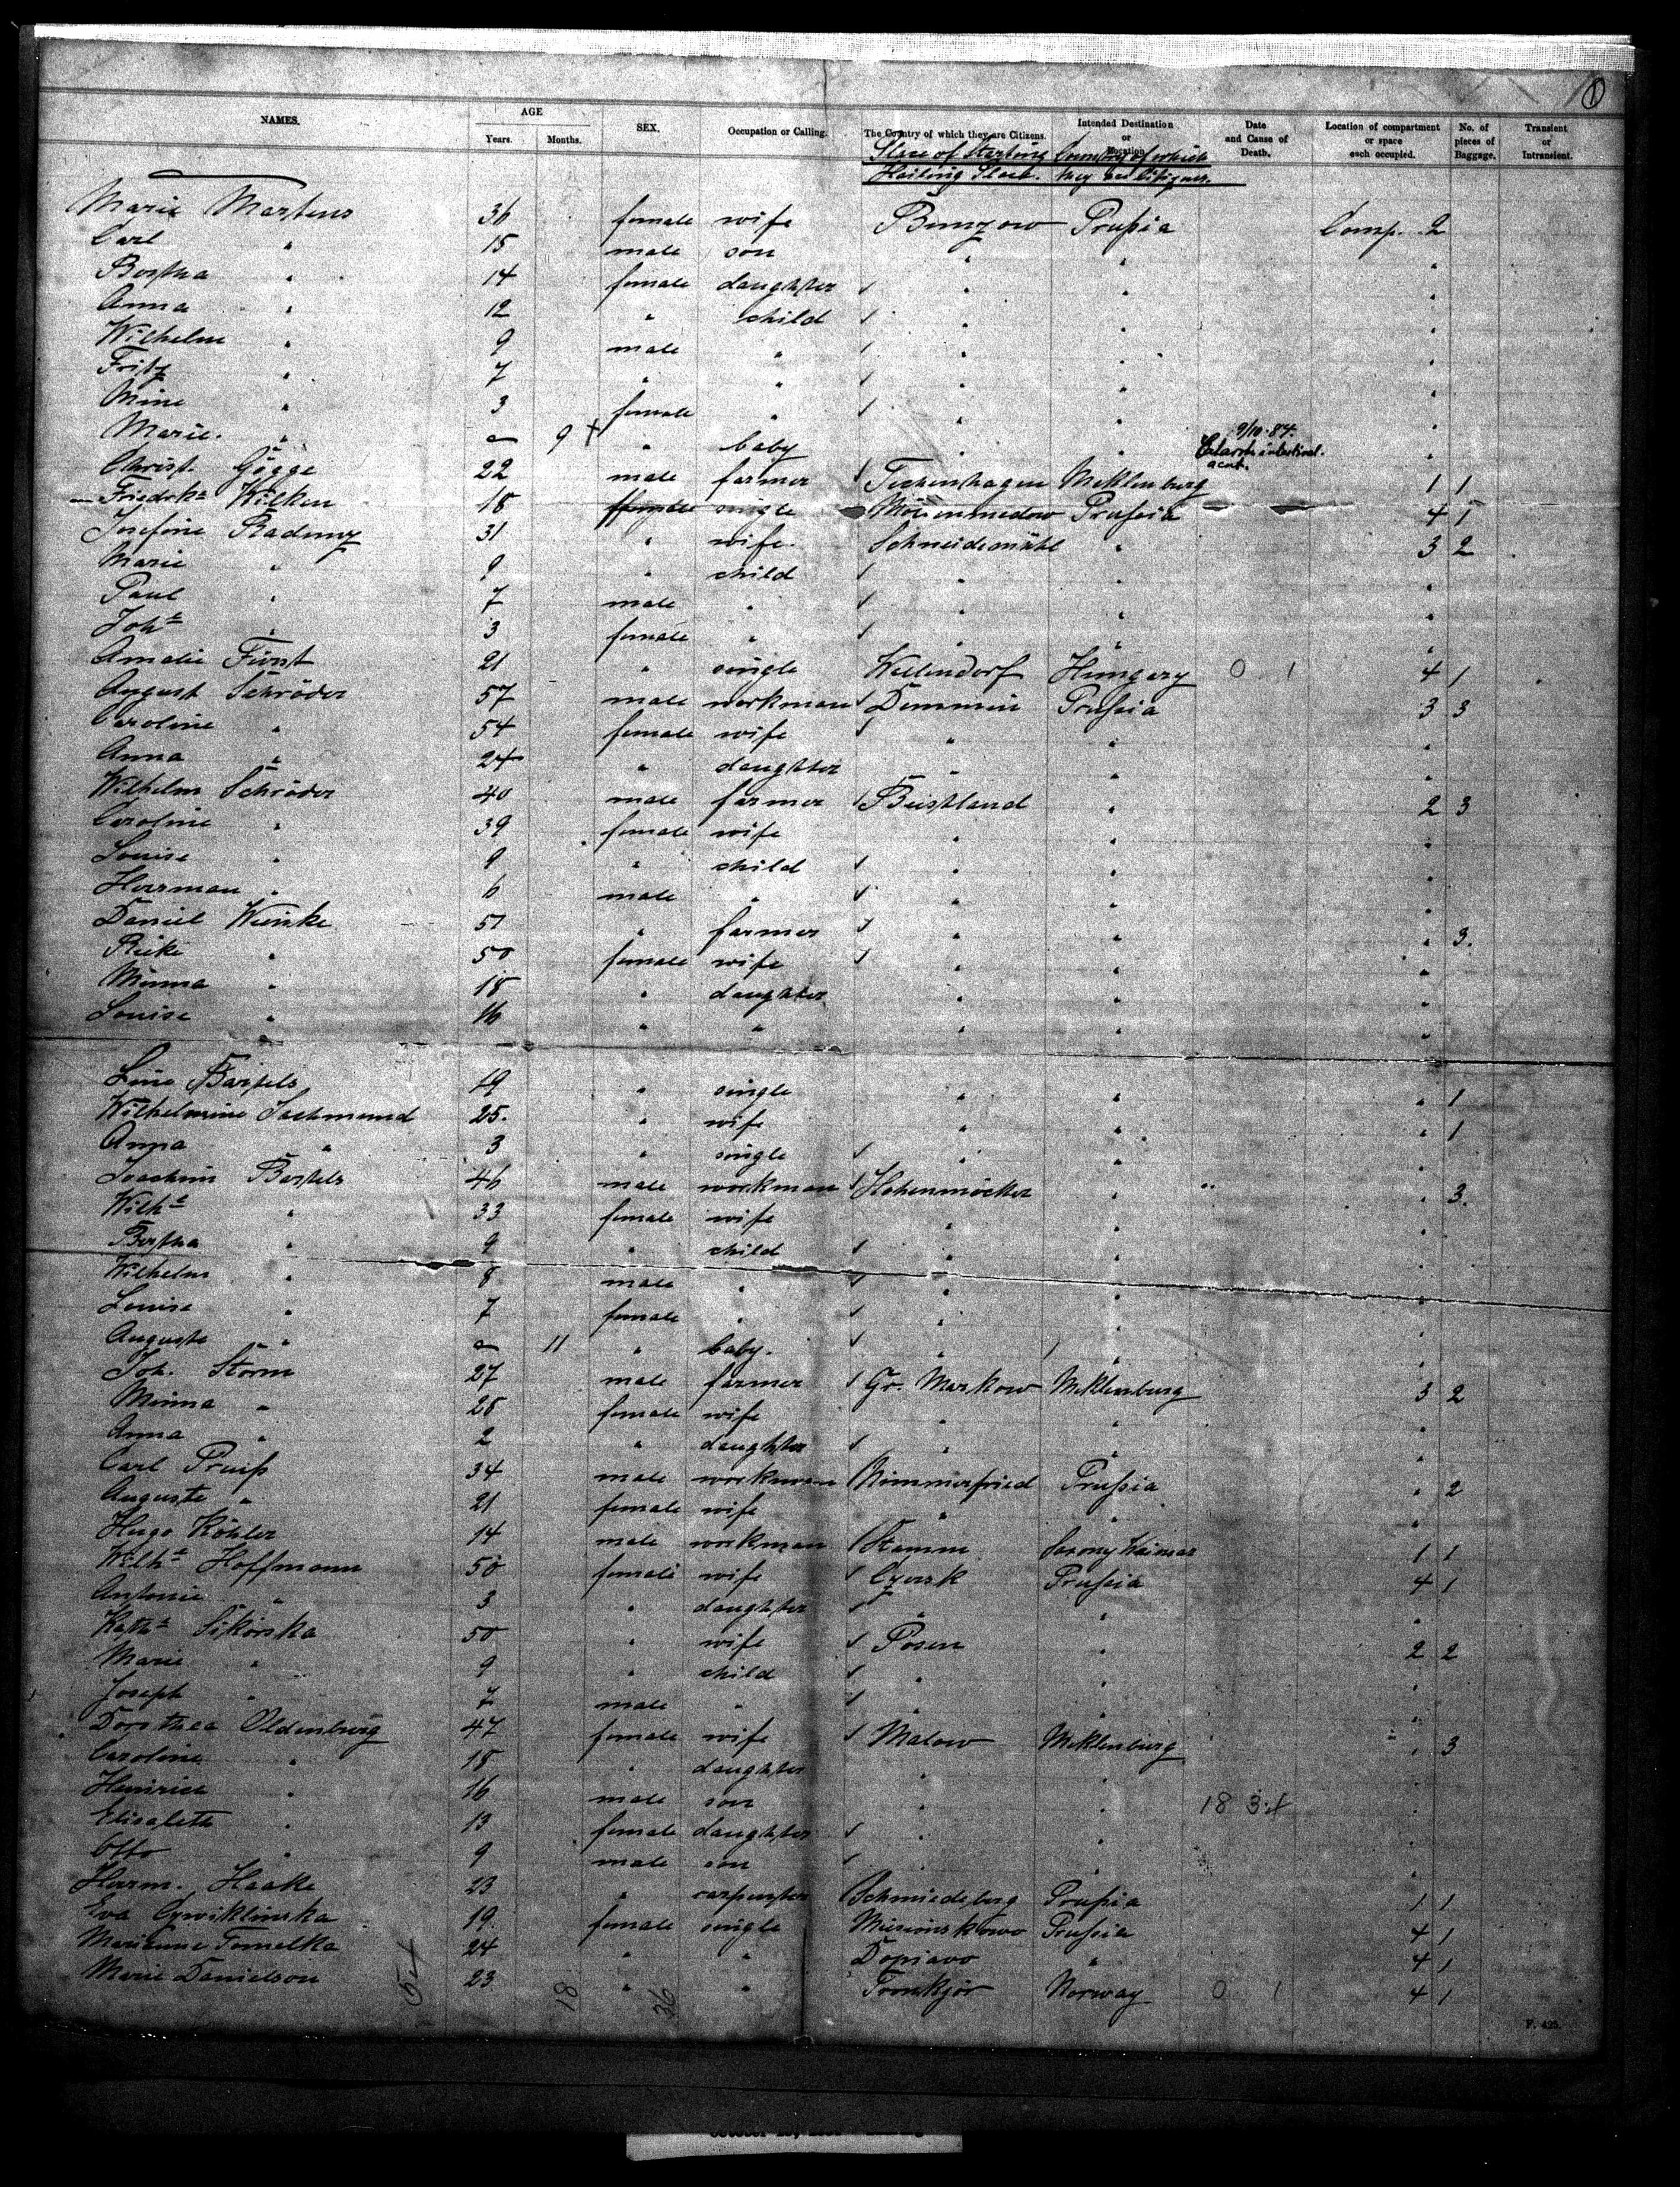 1
NAMES. AGE Years. Months. SEX. Occupation or Calling. The Country of which they are Citizens. Intended Destination or Location. Date and Cause of Death. Location of compartment or space each occupied. No. of pieces of Baggage. Transient or Intransient.
Place of Starting Country of which
Hailing Place. they are Citizens.
Marie Martens 36 female wife Prussia Comp. 2
Carl " 15 male son " " "
Bertha " 14 female daughter " " "
Anna " 12 " child " " "
Wilhelm " 9 male " " " "
Fritz " 7 " " " " "
Mine " 3 female " " " "
Marie " 9 + " baby " " 9/10.84. intestinal. acut. "
Christ. Gögge 22 male farmer Mecklenburg 1 1
Friedrke Wilken 18 female single Prussia 4 1
Josefine Radunz 31 " wife. Schneidemühl " 3 2
Marie " 9 " child " " "
Paul " 7 male " " " "
Johe " 3 female " " " "
Amalie Fürst 21 " single Wellendorf Hungary 0 1 4 1
August Schröder 57 male workman Demmin Prussia 3 3
Caroline " 54 female wife " " "
Anna " 24 " daughter " " "
Wilhelm Schröder 40 male farmer Beistland " 2 3
Caroline " 39 female wife " " "
Louise " 9 " child " " "
Herrman " 6 male " " " "
Daniel 51 " farmer " " " 3.
Rieke " 50 female wife " " "
Minna " 18 " daughter " " "
Louise " 16 " " " " "
Line Bartels 19 " single " " " 1
Wilhelmine Sachmund 25. " wife " " " 1
Anna " 3 " single " " "
Joachim Bartels 46 male workman Hohenmöcker " " 3.
Wilhe " 33 female wife " " "
Bertha " 9 " child " " "
Wilhelm " 8 male " " " "
Louise " 7 female " " " "
Auguste " 11 " baby. " " "
Joh. Storm 27 male farmer Gr. Markow Mecklenburg 3 2
Minna " 28 female wife " " "
Anna " 2 " daughter " " "
Carl 34 male workman Nimmerfried Prussia " 2
Auguste " 21 female wife " " "
Hugo Köhler 14 male workman Stamm Saxony Weimar 1 1
Wilhe Hoffmann 50 female wife Czersk Prussia 4 1
Antonie " 3 " daughter " " "
Kathe Sikorska 50 " wife Posen " 2 2
Marie " 9 " child " " "
Joseph " 7 male " " " "
Dorothea Oldenburg 47 female wife Malow Mecklenburg " 3
Caroline " 18 " daughter " " "
Heinrich " 16 male son " " 18 34 "
Elisabeth " 13 female daughter " " "
Otto " 9 male son " " "
Herm. Haake 23 " carpenter Schmiedeberg Prussia 1 1
Eva Cywiklinska 19. female single Prussia 4 1
Marianne Tomalka 24 " " " 4 1
Marie Danielson 23 " " Norway 0 1 4 1
54 18 36
F. 425.